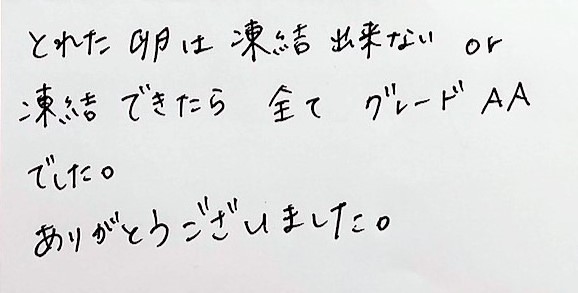 とれた 卵は 凍結 出来ない or
凍結 できたら 全て グレード AA
でした。
ありがとうございました。